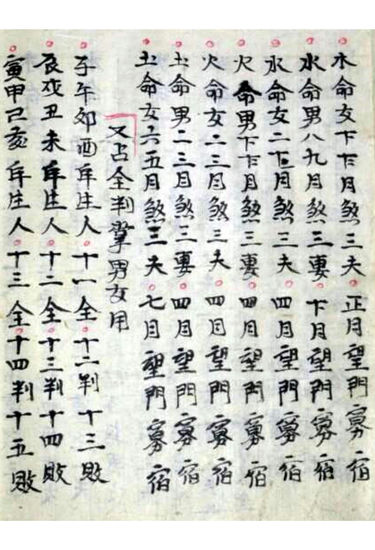 木命女月煞三夫正月望門寡宿
水命男八九月煞三妻月望門寡宿
水命女二月煞三夫四月望門寡宿
火命男月煞三妻四月望門寡宿
火命女二三月煞三夫四月望門寡宿
土命男二三月煞三妻四月望門寡宿
土命女六五月煞三夫七月望門寡宿
又占全判男女用
子午卯酉年庄人十一全十二判十三敗
辰戌丑未年庄人十二全十三判十四敗
寅甲己亥年庄人十三全十四判十五敗